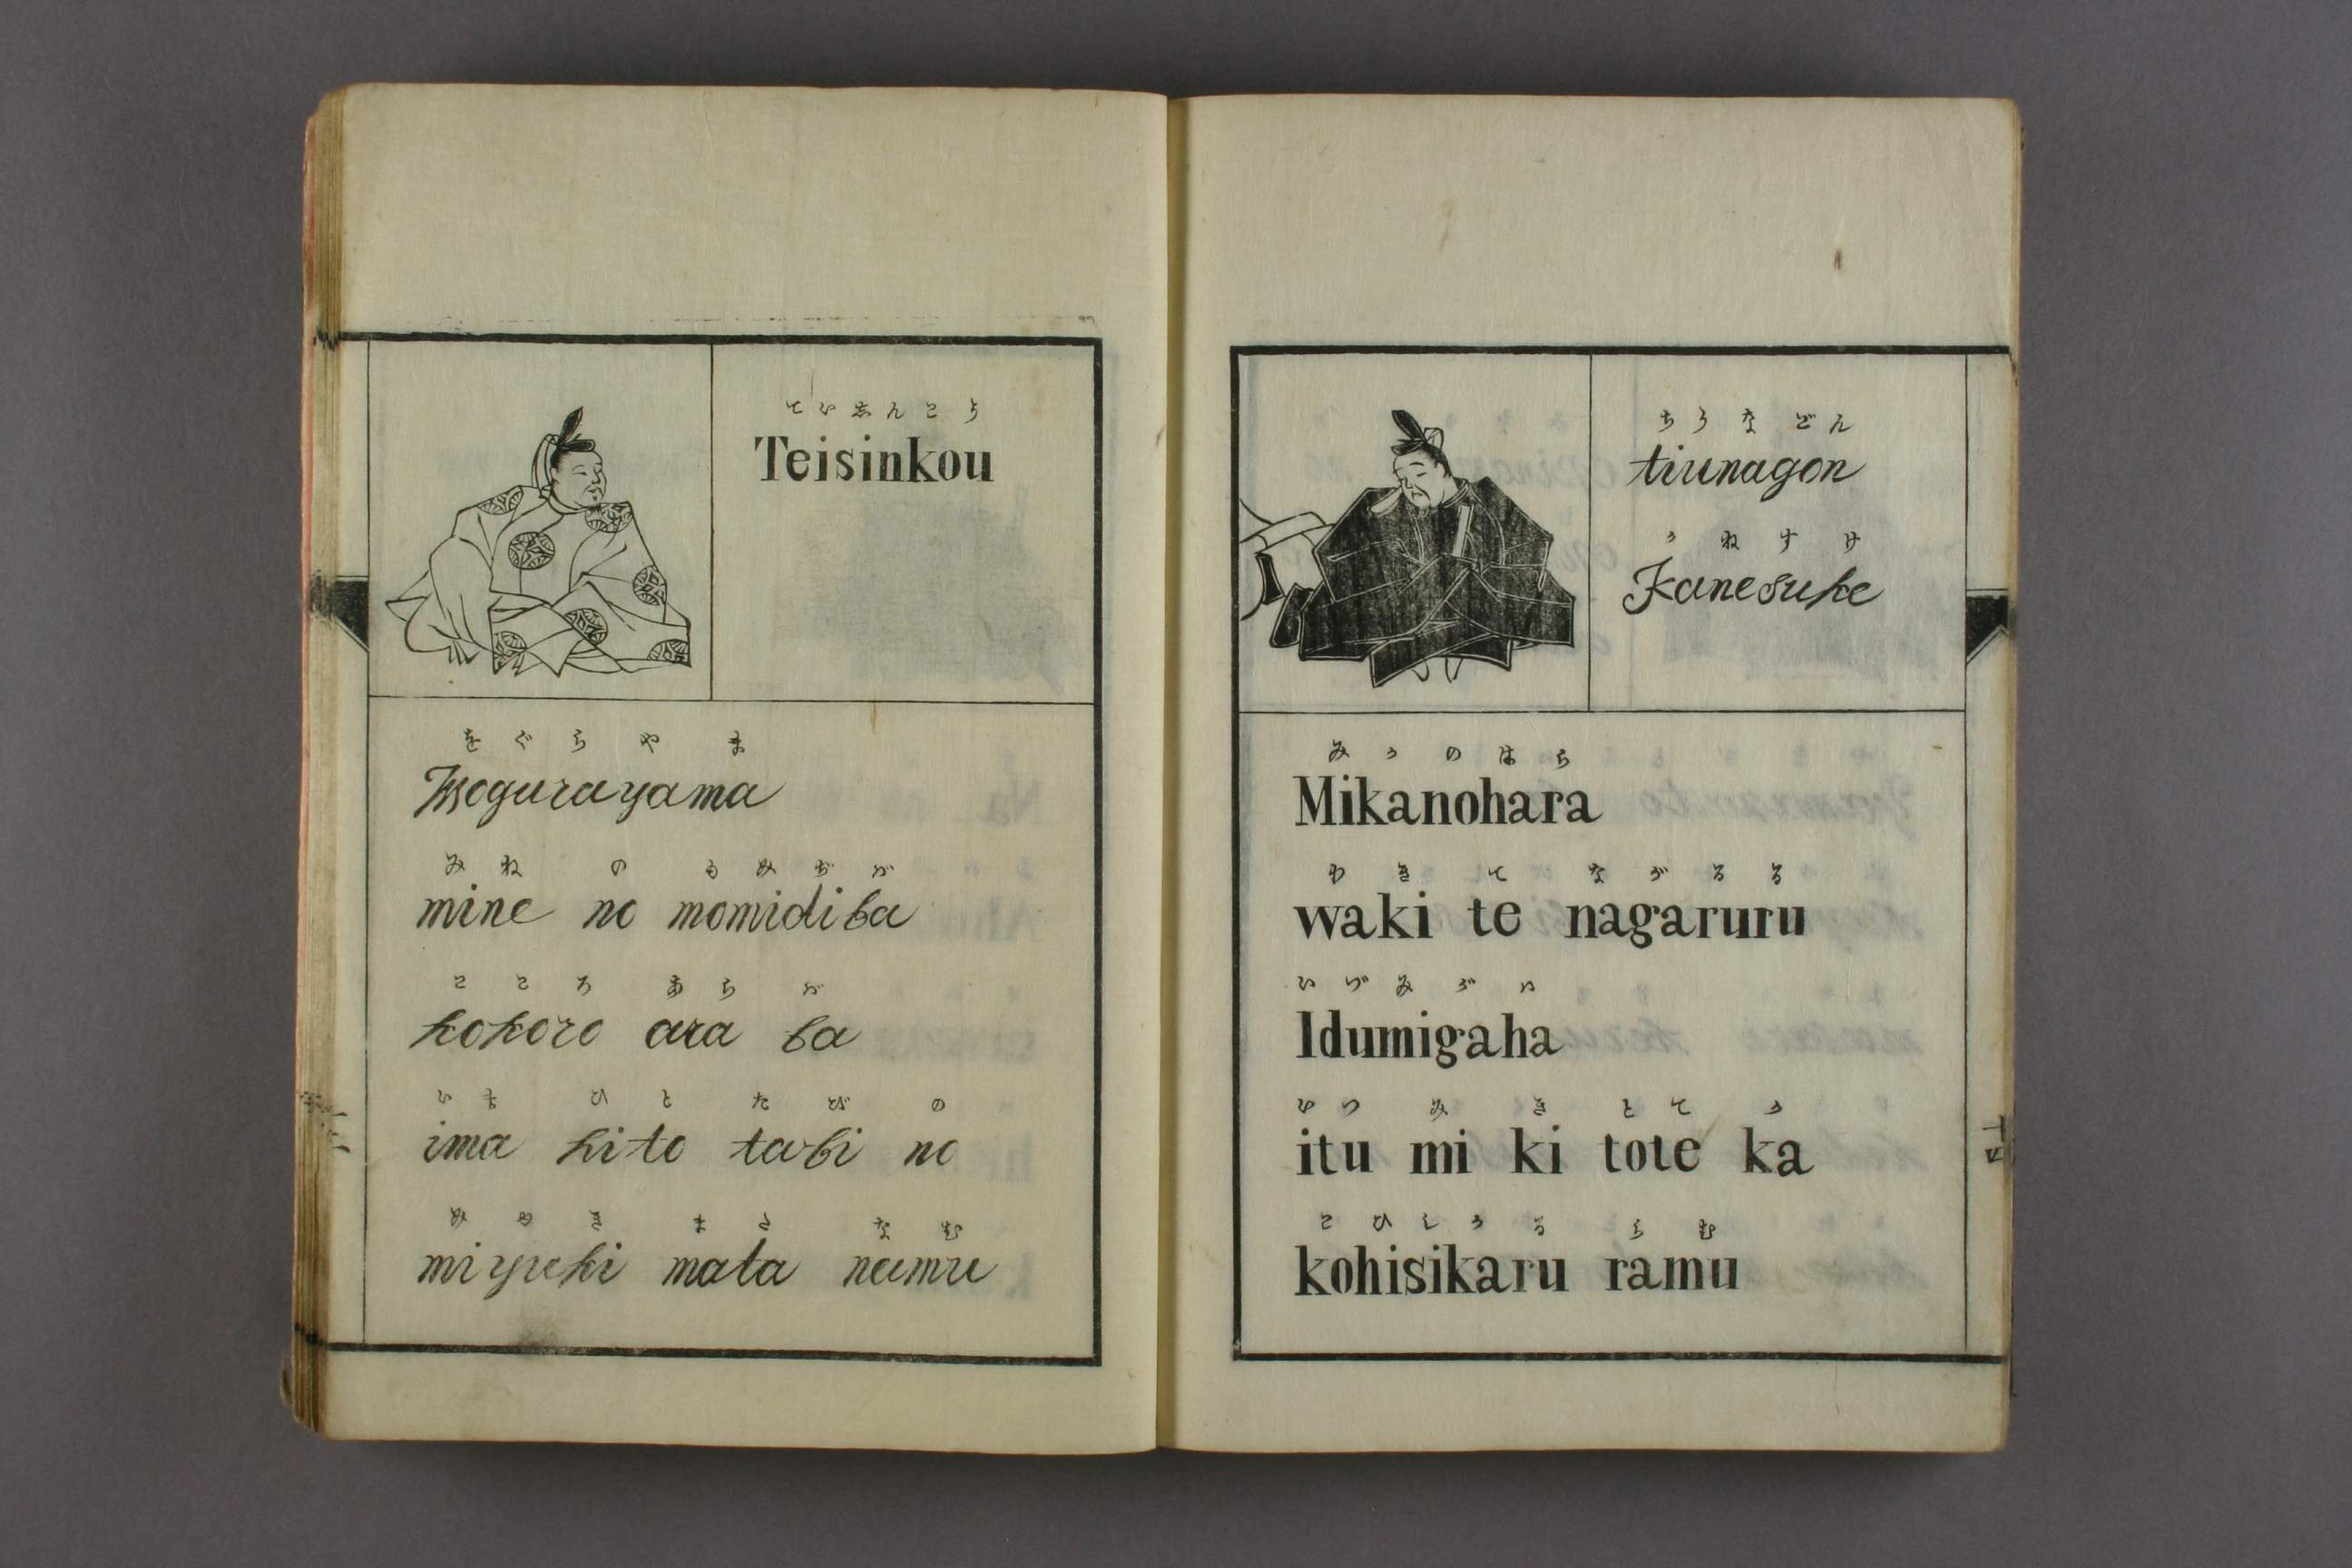 ていしんこう
Teisinkou
をぐらやま
Wogurayama
みね の もみぢば
mine no momidiba
こころ あら ば
kokoro ara ba
いま ひと たび の
ima hito tabi no
みゆき また なむ
miyuki mata namu
ちうなごん
tiunagon
かねすけ
Kanesuke
みかのはら
Mikanohara
わき て ながるる
waki te nagaruru
いづみがは
Idumigaha
いつ み き とて か
itu mi ki tote ka
こひしかる らむ
kohisikaru ramu
十四